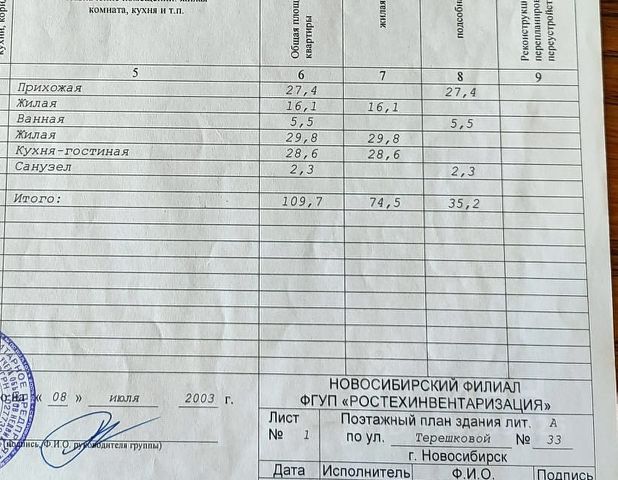 комната, кухня и т.п.
Общая площ
квартиры
жилая
подсобн
Реконструкц
перепланиров
переустройст
5 6 7 8 9
Прихожая 27,4 27,4
Жилая 16,1 16,1
Ванная 5,5 5,5
Жилая 29,8 29,8
Кухня-гостиная 28,6 28,6
Санузел 2,3 2,3
Итого: 109,7 74,5 35,2
на « 08 » июля 2003 г.
(подпись, Ф.И.О. руководителя группы)
НОВОСИБИРСКИЙ ФИЛИАЛ
ФГУП «РОСТЕХИНВЕНТАРИЗАЦИЯ»
Лист № 1
Поэтажный план здания лит. А
по ул. Терешковой № 33
г. Новосибирск
Дата Исполнитель Ф.И.О. Подпись